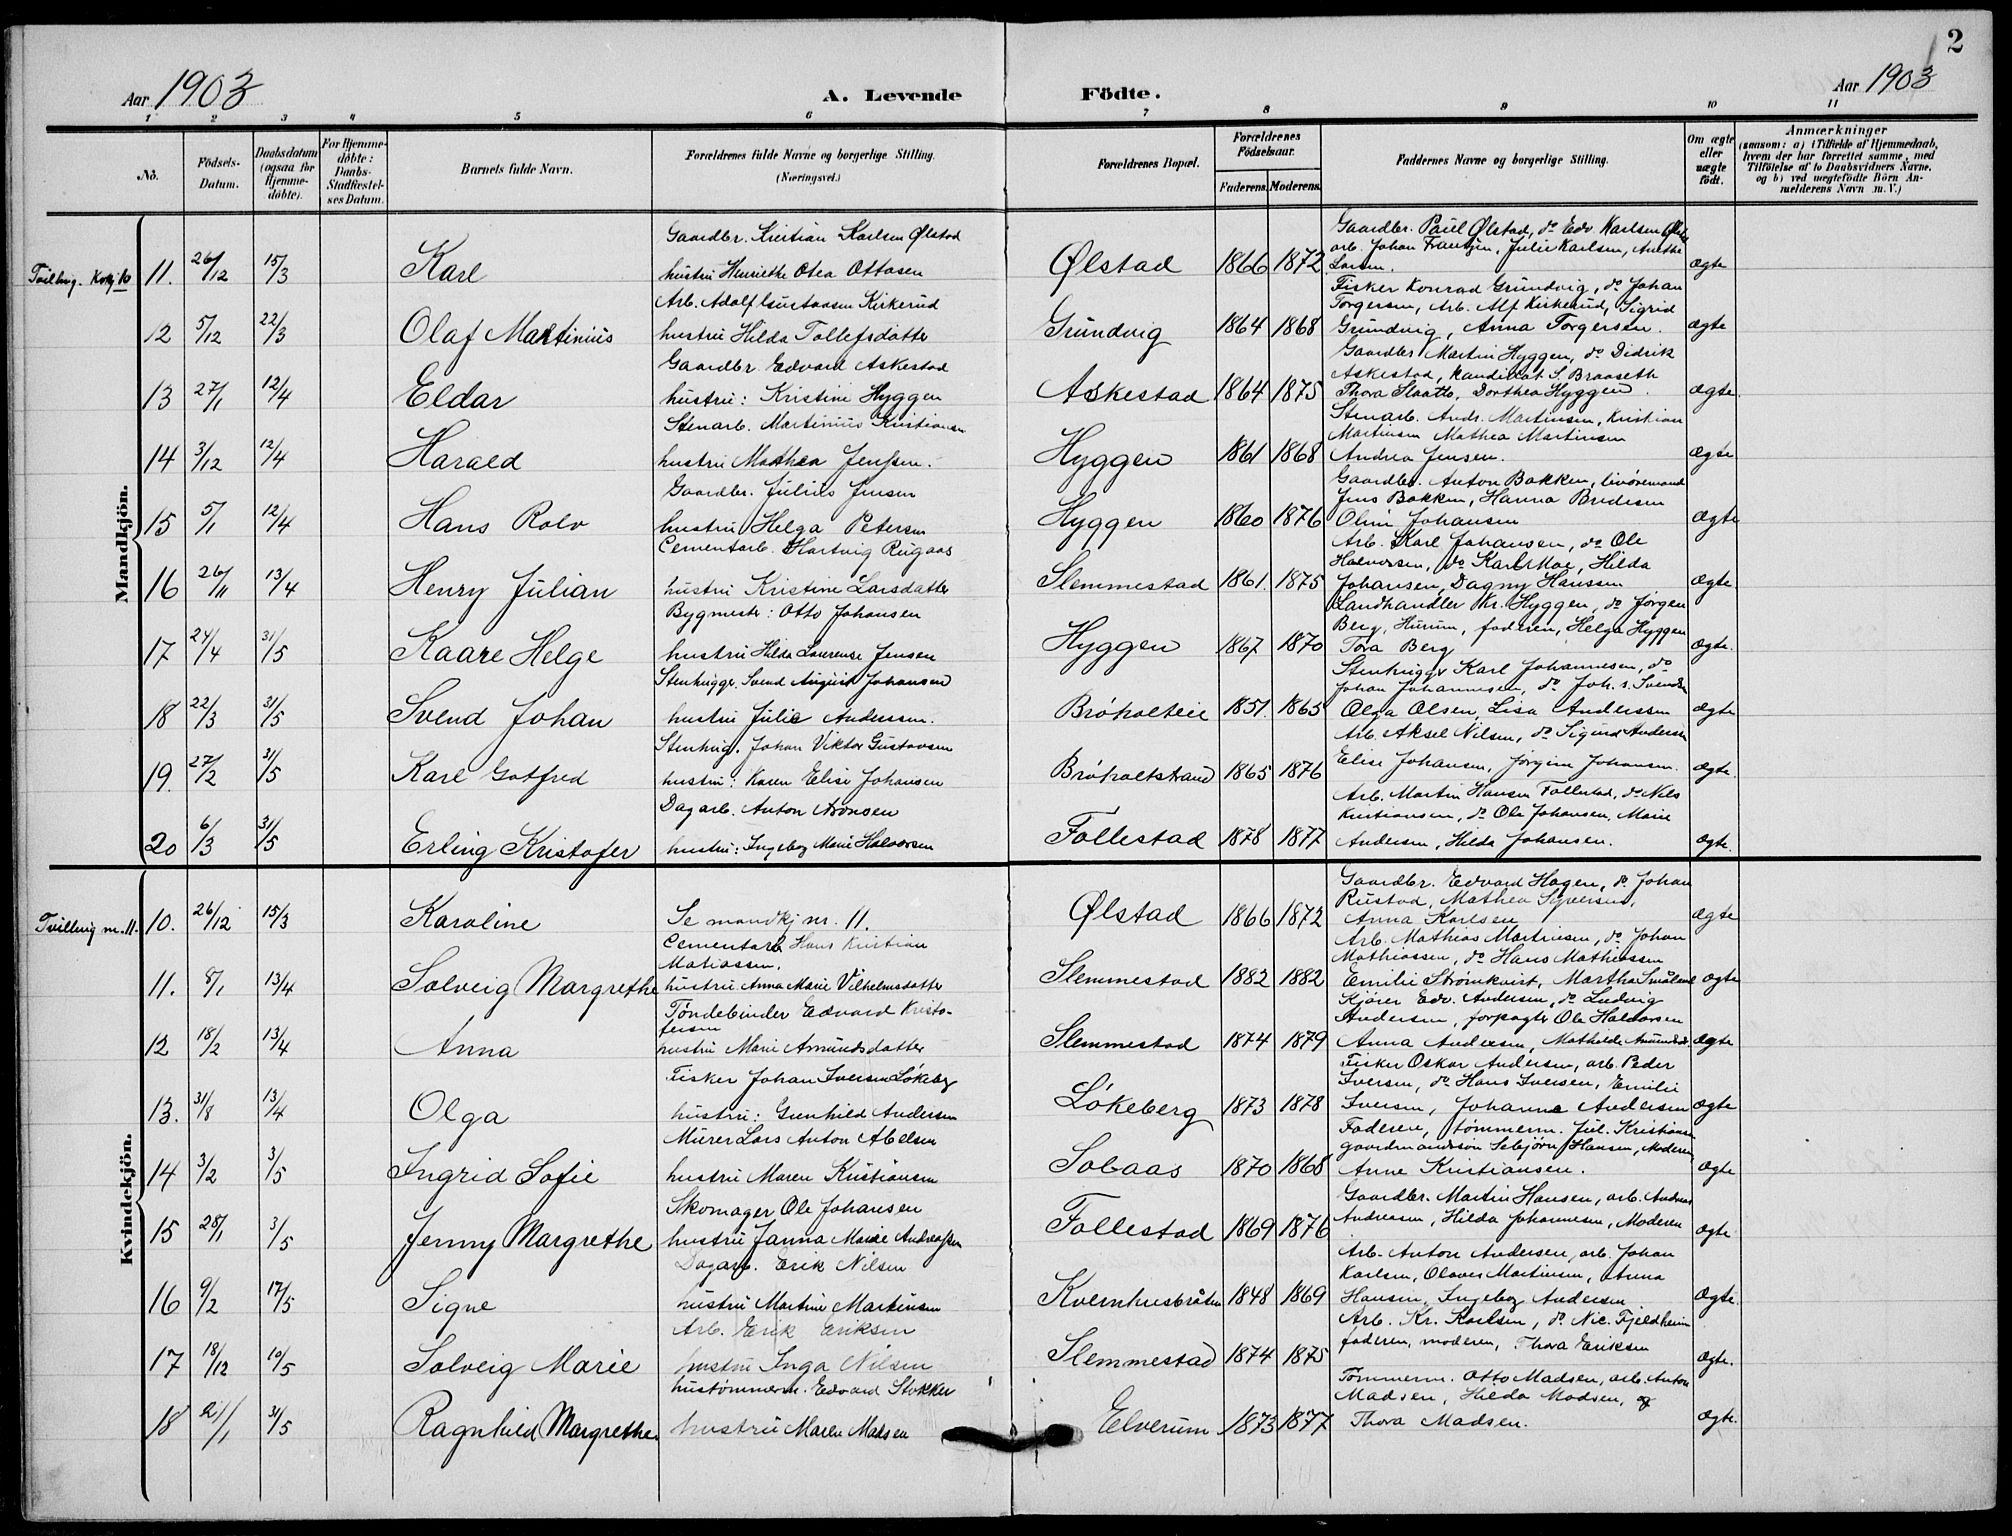 2
Aar 1903
A. Levende Födte.
Aar 1903
1 2 3 4 5 6 7 8 9 10 11
No.
Födsels-Datum.
Daabsdatum (ogsaa for Hjemme-döbte).
For Hjemme-döbte: Daabs-Stadfæstel-ses Datum.
Barnets fulde Navn.
Forældrenes fulde Navne og borgerlige Stilling.
(Næringsvei.)
Forældrenes Bopæl.
Forældrenes Födselsaar.
Faderens. Moderens.
Faddernes Navne og borgerlige Stilling.
Om ægte eller uægte födt.
Anmærkninger
(saasom: a) i Tilfælde af Hjemmedaab,
hvem der har forrettet samme, med
Tilföielse af to Daabsvidners Navne,
og b) ved uægtefödte Börn An-
melderens Navn m. V.)
Mandkjön.
Gaardbr. Kristian Karlsen Ølstad
Gaardbr. Paul Ølstad, do Edv Karlsen Ølstad
arb. Johan Frantzen, Julie Karlsen, Anethe
Tvilling. Kvkj 10 11. 26/12 15/3 Karl hustru Henriethe Otea Ottosen Ølstad 1866 1872 Larsen. ægte
Arb. Adolf Gustavsen Kirkerud
Fisker Konrad Grundvig, do Johan
Torgersen, Arb. Alf Kirkerud, Sigrid
12 5/12 22/3 Olaf Martinius hustru Hilda Tollefsdatter Grundvig 1864 1868 Grundvig, Anna Torgersen. ægte
Gaardbr. Edvard Askestad
Gaardbr Martin Hyggen, do Didrik
Askestad, Kandidat S. Braaseth
13 27/1 12/4 Eldar hustru: Kristine Hyggen Askestad 1864 1875 Thora Slaatto, Dorthea Hyggen. ægte
Stenarb. Martinius Kristiansen
Stenarb. Andr. Martinsen, Kristian
Martinsen Mathea Martinsen
14 3/12 12/4 Harald hustru Mathea Jensen. Hyggen 1861 1868 Andrea Jensen. ægte
Gaardbr. Julius Jensen
Gaardbr. Anton Bakken, livöremand
Jens Bakken, Hanna Bredesen
15 5/1 12/4 Hans Rolv hustru Helga Petersen Hyggen 1860 1876 Oline Johansen ægte
Cementarb. Hartvig Rugaas
Arb. Karl Johansen, do Ole
Halvorsen, do Karl Moe, Hilda
16 26/11 13/4 Henry Julian hustru Kristine Larsdatter Slemmestad 1861. 1875 Johansen, Dagny Hansen ægte
Bygmester: Otto Johansen
Landhandler Kr. Hyggen, do Jørgen
Berg, Hurum, faderen, Helga Hyggen
17 24/4 31/5 Kaare Helge hustru Hilda Laurense Jensen Hyggen 1867 1870 Tora Berg ægte.
Stenhugger. Svend August Johansen
Stenhugger Karl Johannesen, do
Johan Johannesen, do Joh. s. Svendsen
18 22/3 31/5 Svend Johan hustru Julie Andersen. Bröholteie 1851. 1865 Olga Olsen, Lisa Anderssen ægte
Stenhug. Johan Viktor Gustavsen
Arb. Aksel Nilsen, do Sigurd Andersen
19. 27/2 31/5 Karl Gotfred hustru: Karen Elise Johansen Bröholtstrand 1865 1876 Elise Johansen, Jørgine Johansen. ægte.
Dagarb. Anton Aronsen
Arb. Martin Hansen Follestad, do Nils
Kristiansen, do Ole Johansen, Marie
20 6/3 31/5 Erling Kristofer hustru: Ingeborg Marie Halvorsen Follestad 1878 1877 Andersen, Hilda Johansen. ægte.
Kvindekjön.
Gaardbr. Edvard Hagen, do Johan
Rustad, Mathea Syversen,
Tvilling m. 11. 10. 26/12 15/3 Karoline Se mandkj nr. 11. Ølstad 1866 1872 Anna Karlsen ægte
Cementarb Hans Kristian
Matiassen.
Arb. Mathias Martinsen, do Johan
Mathiassen, do Hans Mathiassen
11. 8/1 13/4 Solveig Margrethe hustru Anna Marie Vilhelmsdatter Slemmestad 1882 1882 Emilie Strømkvist, Martha Smålend ægte
Töndebinder Edvard Kristo-
fersen
Kjører Edv. Andersen, do Ludvig
Andersen, forpagter Ole Halvorsen
12 18/2 13/4 Anna hustru Marie Amundsdatter Slemmestad 1874 1879 Anna Andersen, Mathilde Amundsd. ægte
Fisker Johan Iversen Lökeberg
Fisker Oskar Andersen, arb. Peder
Iversen, do Hans Iversen, Emilie
13. 31/8 13/4 Olga hustru: Gunhild Andersen Lökeberg 1873 1878 Iversen, Johanne Andersen ægte
Murer Lars Anton Abelsen
Faderen, tömmerm. Jul. Kristiansen
gaardmandssön Sebjörn Hansen, Moderen
14 3/2 3/5 Ingrid Sofie hustru Maren Kristiansen Solaas 1870 1868 Anne Kristiansen. ægte
Skomager Ole Johansen
Gaardbr. Martin Hansen, arb. Andreas
15 28/1 3/5 Jenny Margrethe hustru Janna Marie Andreassen Follestad 1869 1876 Andreasen, Hilda Johannesen, Moderen ægte
Dagarb. Erik Nilsen
Arb. Anton Andersen, arb. Johan
Karlsen, Olaves Martinsen, Anna
16 9/2 17/5 Signe hustru Martine Martinsen Kvernhusbråten 1848 1869 Hansen, Ingeborg Andersen ægte.
Arb. Erik Eriksen
Arb. Kr. Karlsen, do Nic. Fjeldheim
17 18/12 10/5 Solveig Marie hustru Inga Nilsen Slemmestad 1874 1875 faderen, moderen, Thora Eriksen ægte.
hustömmerm. Edvard Stokker
Tömmerm. Otto Madsen, arb. Anton
Madsen, Hilda Madsen, og
18 21/1 31/5 Ragnhild Margrethe. hustru Maren Madsen Elverum 1873 1877 Thora Madsen. ægte.